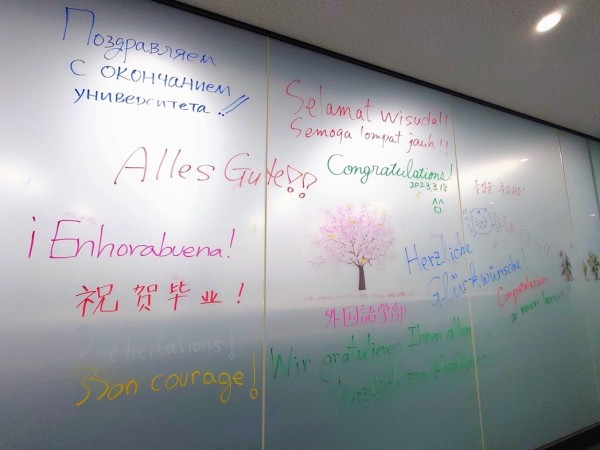 Поздравляем
с окончанием
университета!!
Selamat wisuda!!
Semoga lompat jauh!!
Alles Gute!!
Congratulations!
2023.3.18
^^
¡Enhorabuena!
祝贺毕业！
Felicitations!
Bon courage!
外国語学部
Herzliche
Glückwünsche!
Wir gratulieren Ihnen allen
herzlich zum
Congratulazioni